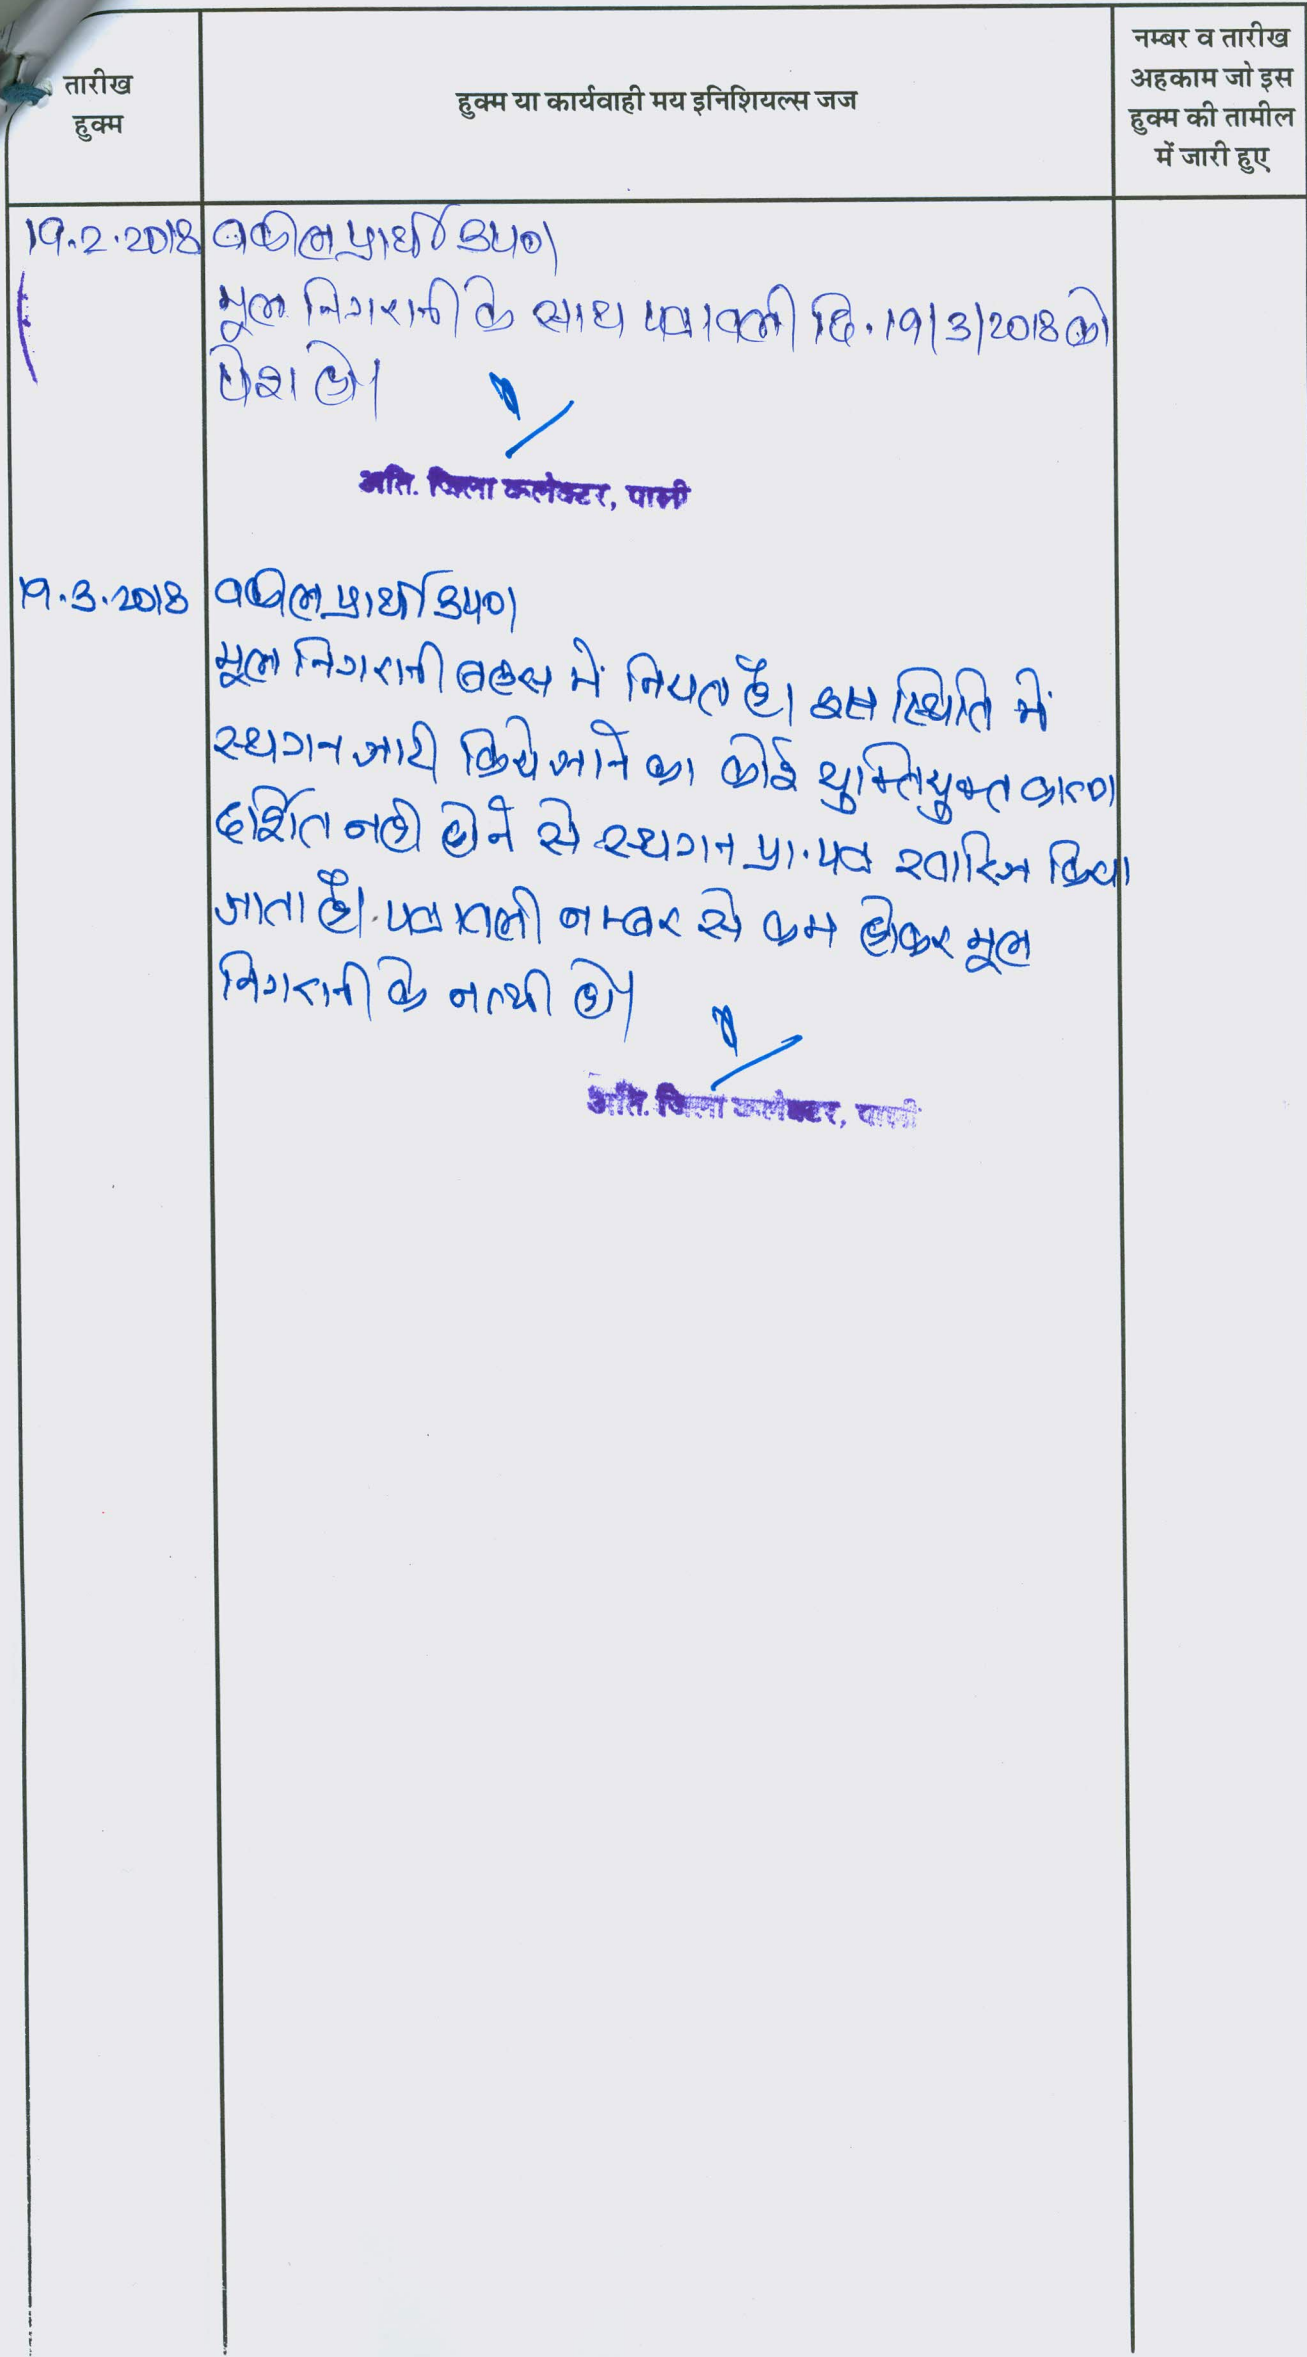 तारीख
हुक्म
हुक्म या कार्यवाही मय इनिशियल्स जज
नम्बर व तारीख
अहकाम जो इस
हुक्म की तामील
में जारी हुए
19.2.2018 वकील प्रार्थी उप०।
मूल निगरानी के साथ पत्रावली दि. 19/3/2018 को
पेश हो।
अति. जिला कलेक्टर, पाली
19.3.2018 वकील प्रार्थी उप०।
मूल निगरानी बहस में नियत है। इस स्थिति में
स्थगन जारी किये जाने का कोई युक्तियुक्त कारण
दर्शित नही होने से स्थगन प्रा.पत्र खारिज किया
जाता है। पत्रावली नम्बर से कम होकर मूल
निगरानी के नत्थी हो।
अति. जिला कलेक्टर, पाली